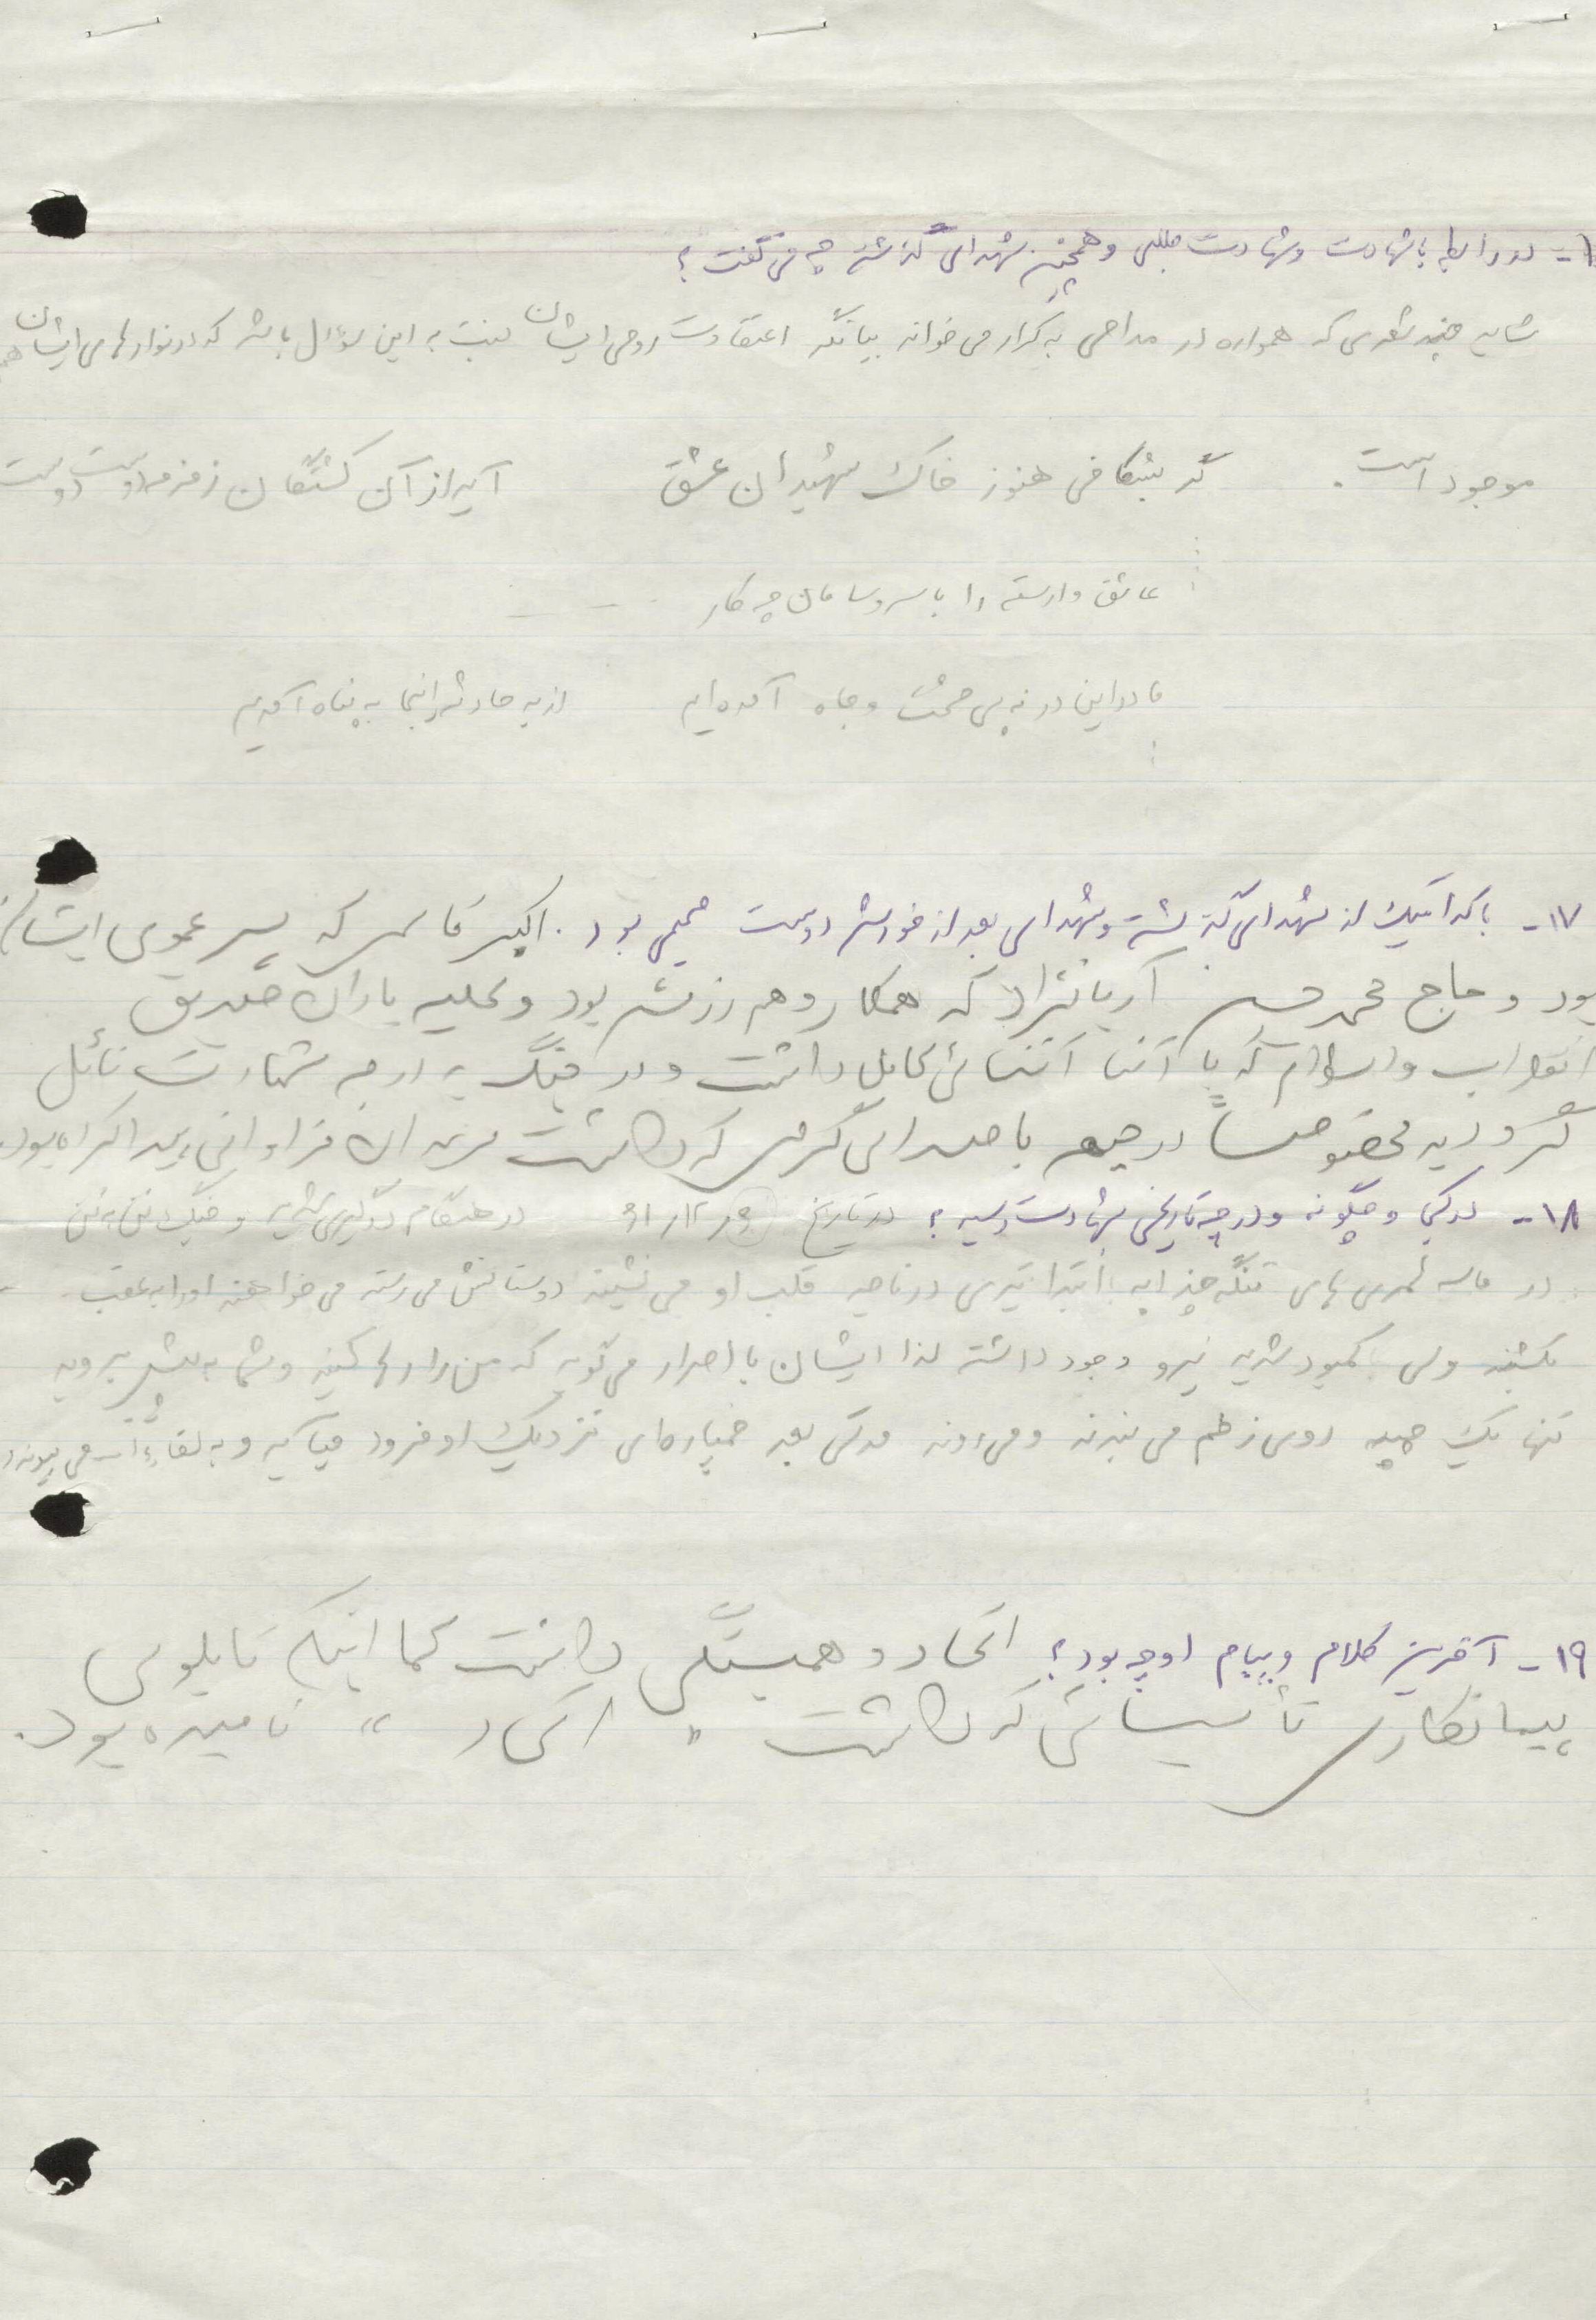 در رابطه با شهادت و شهادت طلبی و همچنین شهدای گذشته چه می گفت ؟
شاید چند شعری که همواره در مداحی به تکرار می خواند بیانگر اعتقادات روحی ایشان نسبت به این سؤال باشد که در نوارهای ایشان هم
موجود است . گر بشکافی هنوز خاک شهیدان عشق آید از آن کشتگان زمزمه دوست دوست
عاشق وارسته را با سر و سامان چه کار
ما در این در نه پی حشمت و جاه آمده ایم از بد حادثه اینجا به پناه آمدیم
۱۷ - با کدامیک از شهدای گذشته و شهدای بعد از خودش دوست صمیمی بود . اکبر که پسر عموی ایشان
بود و حاج محمد آریانژاد که همکار و هم رزمش بود و کلیه یاران صدیق
انقلاب و اسلام که با آنها آشنائی کامل داشت و در جنگ به درجه شهادت نائل
گردید مخصوصاً در جبهه با صدای گرمی که داشت مریدان فراوانی پیدا کرده بود .
۱۸ - در کجا و چگونه و در چه تاریخی بشهادت رسید ؟ در تاریخ در هنگام درگیری شدید و جنگ تن به تن
در ماسه های تنگه چذابه ابتدا تیری در ناحیه قلب او می نشیند دوستانش می رسند می خواهند او را به عقب
بکشند ولی کمبود شدید نیرو وجود داشته لذا ایشان با اصرار می گوید که من را رها کنید و شما به پیش بروید
تنها یک چفیه روی زخم می بندند و می روند مدتی بعد خمپاره ای نزدیک او فرود میآید و به لقاءالله می پیوندد
۱۹ - آخرین کلام و پیام او چه بود ؟ اتحاد و همبستگی داشت کما اینکه تابلوی
پیمانکاری تأسیساتی که داشت " اتحاد " نامیده بود .